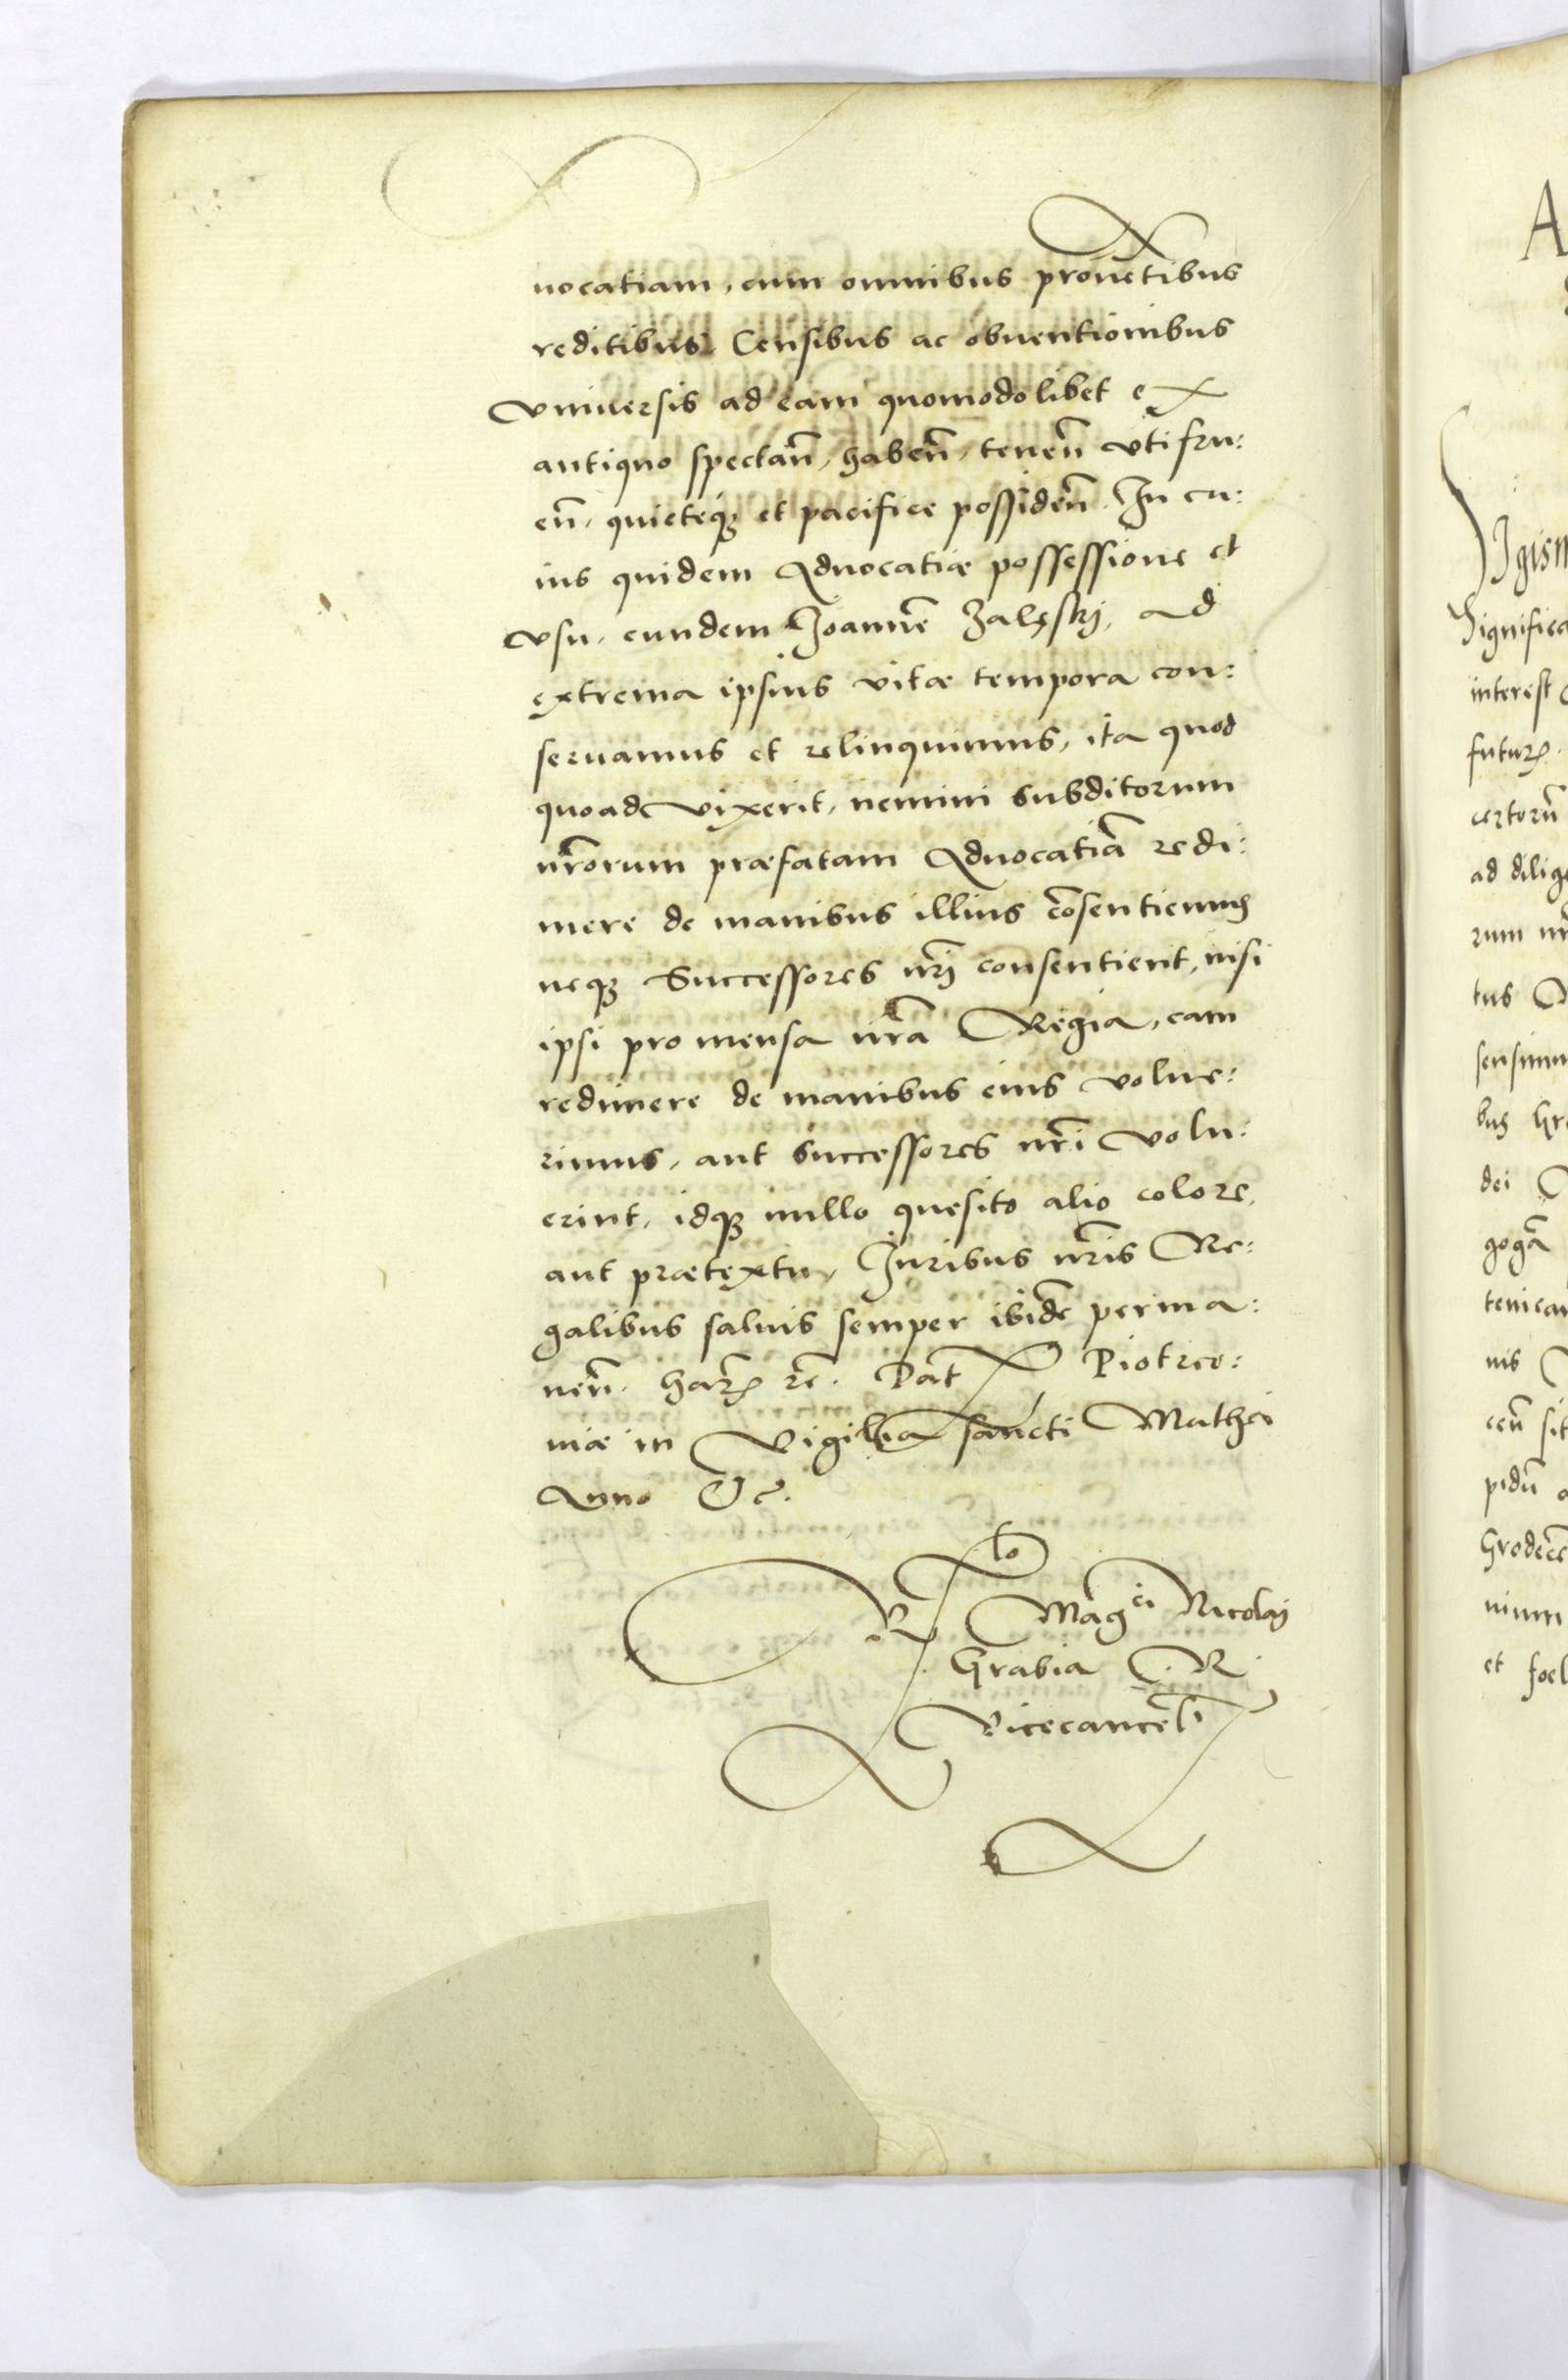 uocatiam, cum omnibus prouētibus
reditibus Censibus ac obuentionibus
Vniuersis ad eam quomodolibet ex
antiquo spectañ, habeñ, teneñ vti fru:
eñ, quieteqꝫ et pacifice possideñ. In cu:
ius quidem Aduocatiæ possessione et
vsu, eundem Joannē Zalęskj, ad
extrema ipsius vitæ tempora con:
seruamus et relinquimus, ita quod
quoad vixerit, nemini subditorum
nr̃orum præfatam Aduocatiā redi:
mere de manibus illius cōsentiemus
neqꝫ Successores nr̃j consentient, nisi
ipsi pro mensa nr̃a Regia, eam
redimere de manibus eius volue:
rimus, aut successores nr̃i volu:
erint, idqꝫ nullo quesito alio colore,
aut prætextu, Juribus nr̃is Re:
galibus saluis semper ibidē perma:
neñ. Harꝝ rē. Dat̃ Piotrco:
uiæ in Vigilia sancti Mathei
Anno Etc̃.
Rlo Mag̃ci Nicolaj
Grabia C. R.
Vicecancel̃i
A
Sigism
Significa
interest
futurꝝ.
certorū
ad dilige
rum nr̃
tus
sensimu
bus Gr
dei
gogā
tenean
nis
ceñ sit
pidū
Grodecē
nium
et foel